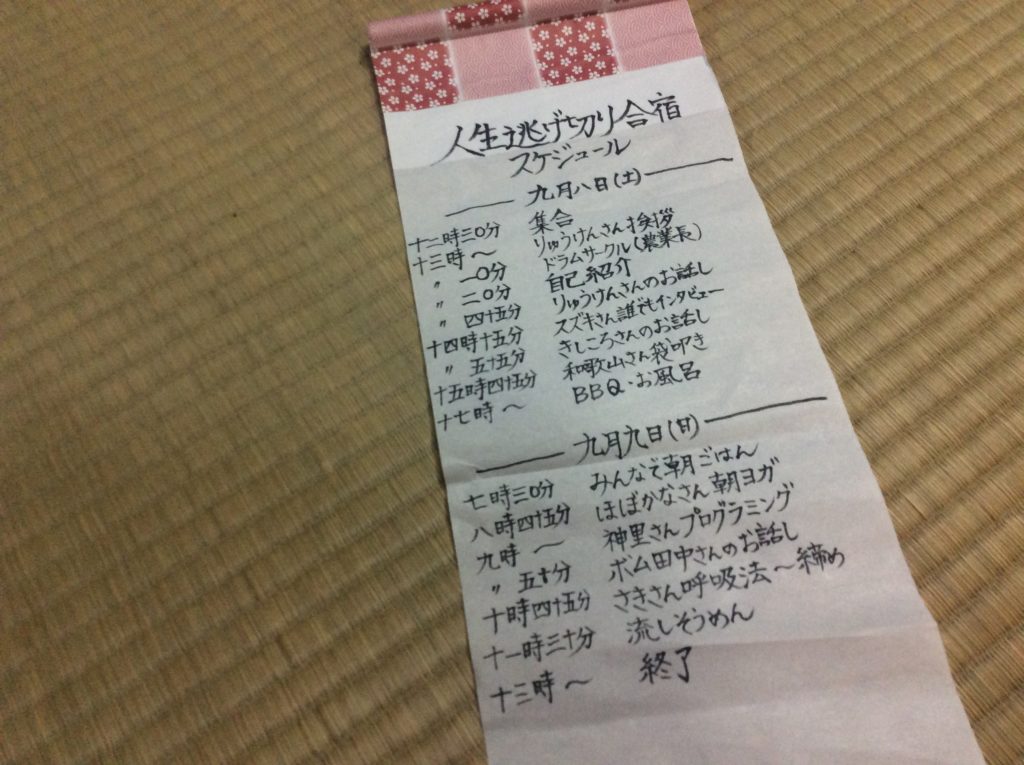 人生逃げ切り合宿
スケジュール
九月八日(土)
十二時三〇分 集合
十三時〜 りゅうけんさん挨拶
〃 一〇分 ドラムサークル(農業長)
〃 二〇分 自己紹介
〃 四十五分 りゅうけんさんのお話し
十四時十五分 スズキさん誰でもインタビュー
〃 五十五分 きしころさんのお話し
十五時四十五分 和歌山さん袋叩き
十七時〜 BBQ・お風呂
九月九日(日)
七時三〇分 みんなで朝ごはん
八時四十五分 ほぼかなさん朝ヨガ
九時〜 神里さんプログラミング
〃 五十分 ボム田中さんのお話し
十時四十五分 さきさん呼吸法〜締め
十一時三十分 流しそうめん
十三時〜 終了